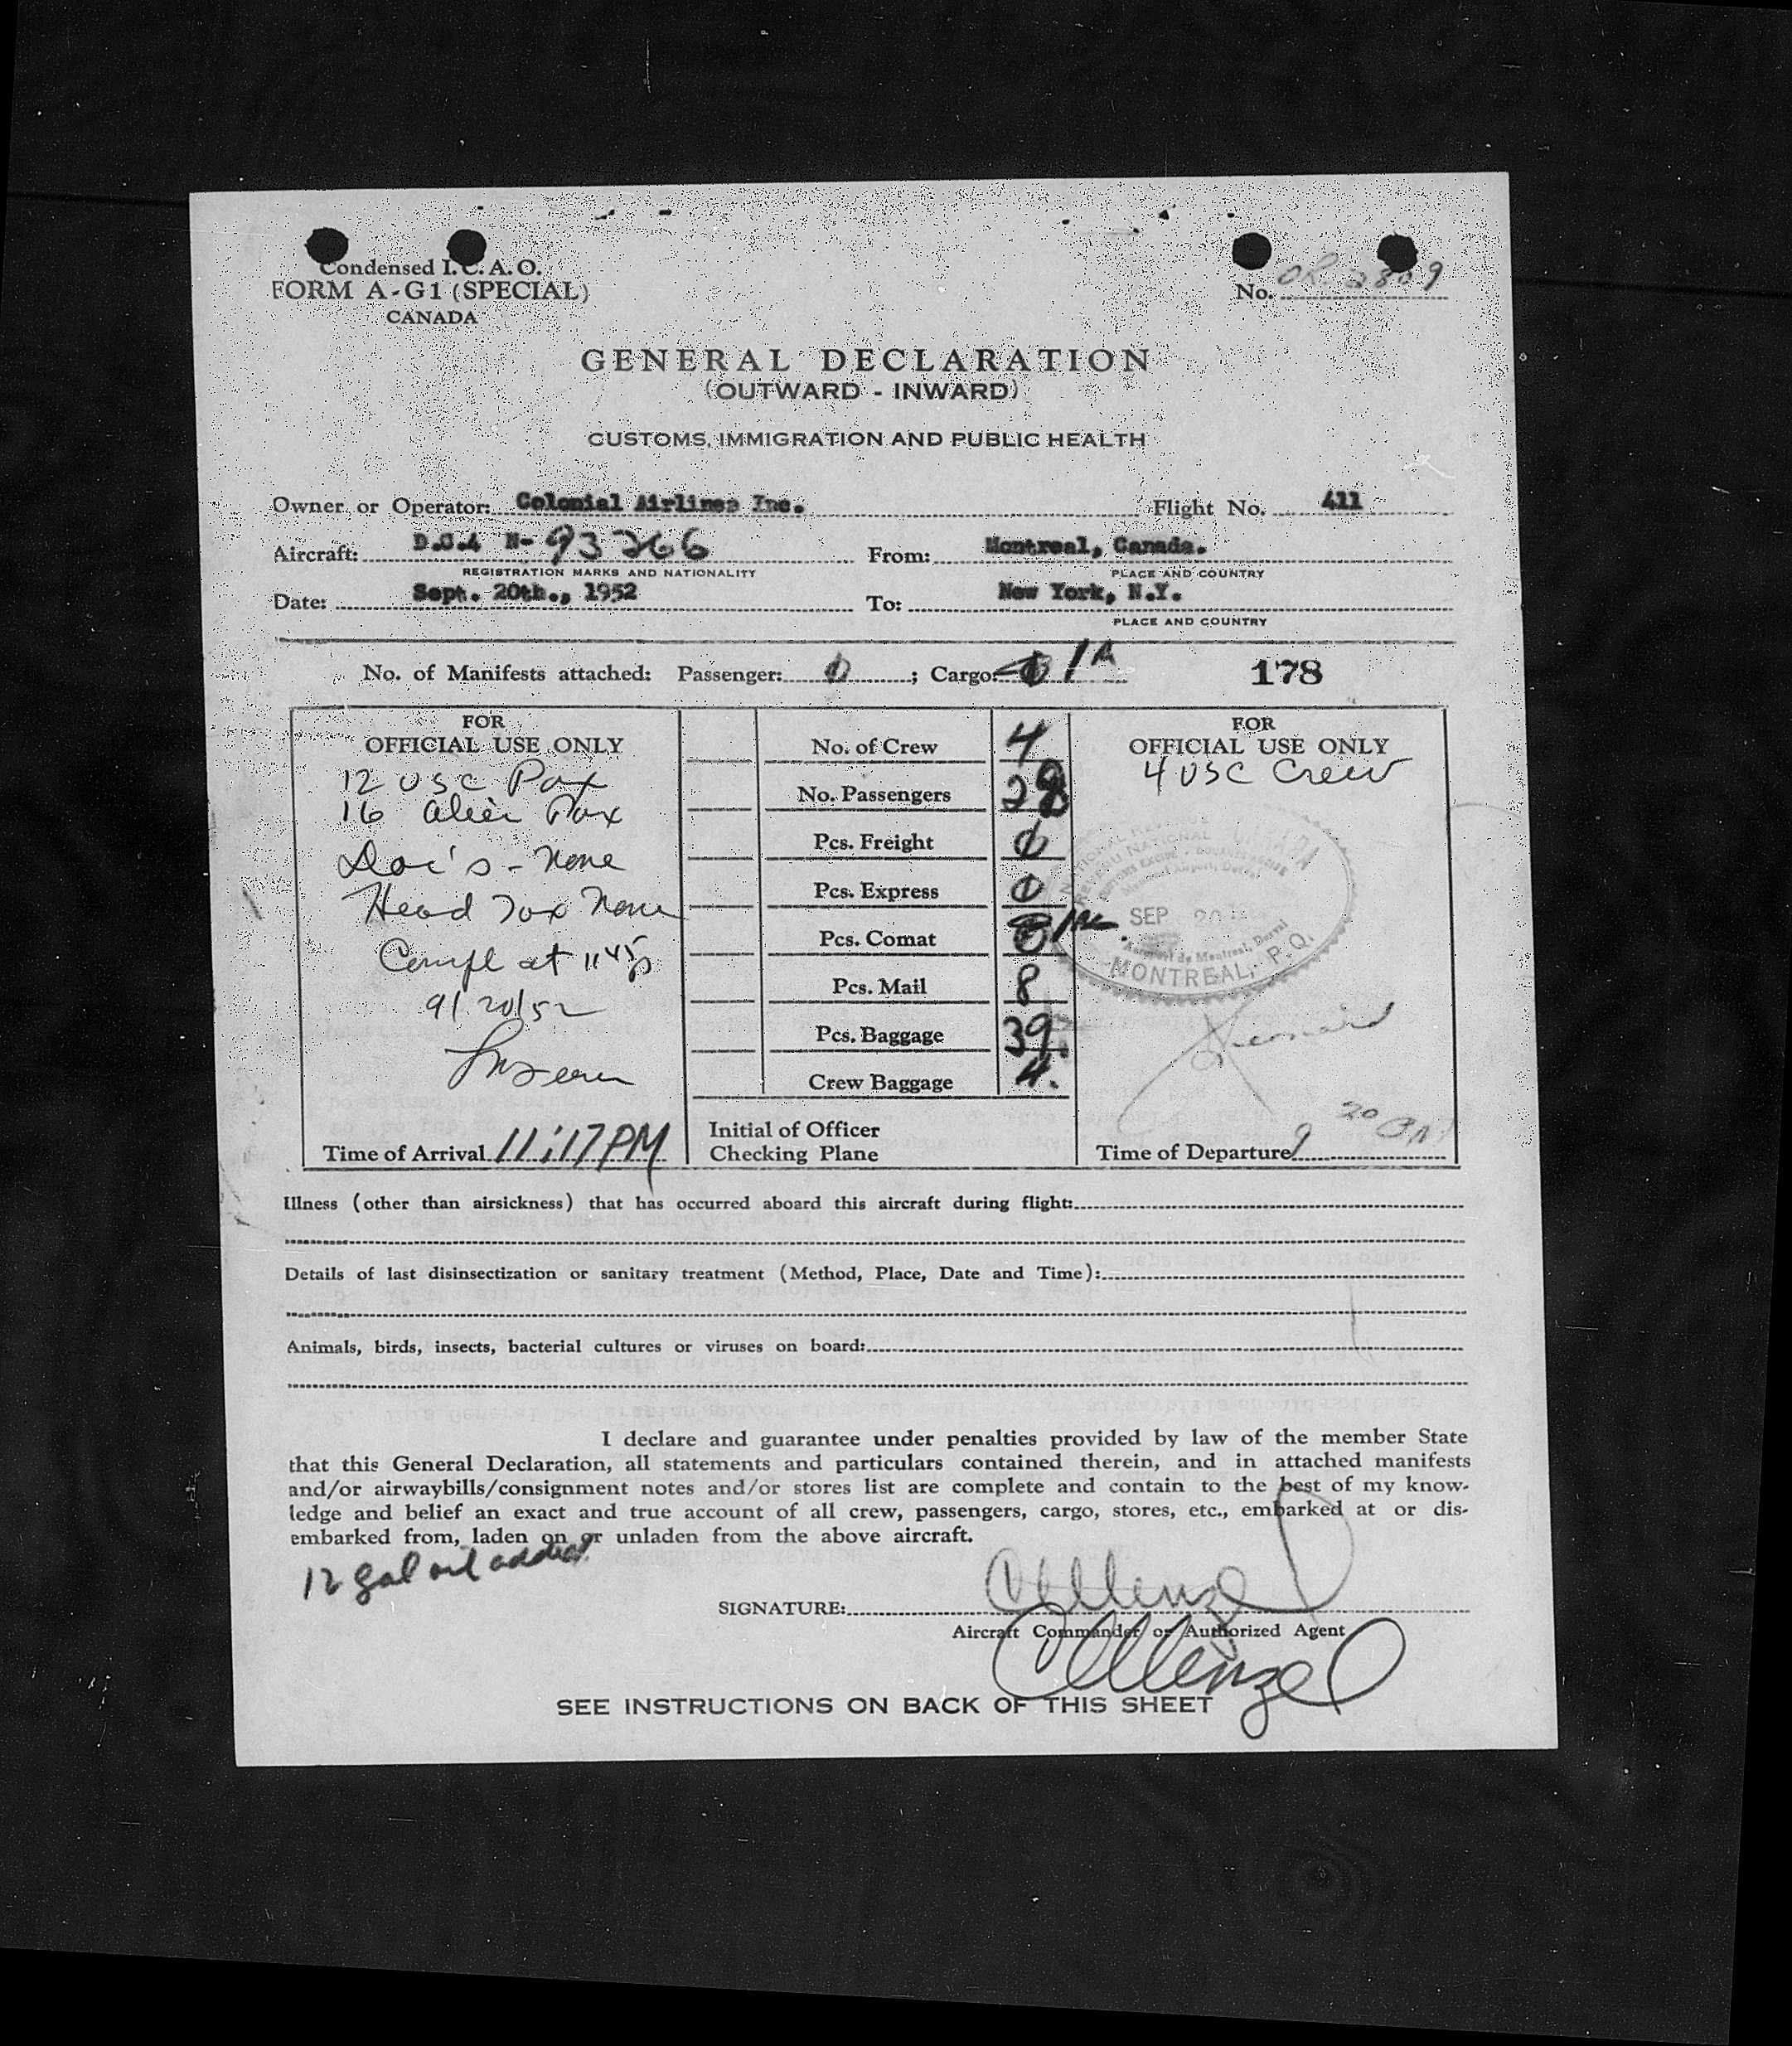 Condensed I.C.A.O.
FORM A-G1 (SPECIAL)
CANADA
No. OR 2809
GENERAL DECLARATION
(OUTWARD - INWARD)
CUSTOMS, IMMIGRATION AND PUBLIC HEALTH
Owner or Operator: Colonial Airlines Inc. Flight No. 411
Aircraft: D.C.4 N-93266 From: Montreal, Canada.
REGISTRATION MARKS AND NATIONALITY PLACE AND COUNTRY
Date: Sept. 20th., 1952 To: New York, N.Y.
PLACE AND COUNTRY
No. of Manifests attached: Passenger: 0 ; Cargo: 0 1A 178
FOR
OFFICIAL USE ONLY
12 USC Pax
16 alien Pax
Doc's - none
Head Tax None
Compl at 11 45p
9/20/52
Time of Arrival 11:17PM
No. of Crew 4
No. Passengers 28
Pcs. Freight 0
Pcs. Express 0
Pcs. Comat
Pcs. Mail 8
Pcs. Baggage 39.
Crew Baggage 4.
Initial of Officer
Checking Plane
FOR
OFFICIAL USE ONLY
4 USC Crew
SEP 20
Aéroport de Montreal, Dorval
MONTREAL, P.Q.
Time of Departure 9 20
Illness (other than airsickness) that has occurred aboard this aircraft during flight:
Details of last disinsectization or sanitary treatment (Method, Place, Date and Time):
Animals, birds, insects, bacterial cultures or viruses on board:
I declare and guarantee under penalties provided by law of the member State
that this General Declaration, all statements and particulars contained therein, and in attached manifests
and/or airwaybills/consignment notes and/or stores list are complete and contain to the best of my know-
ledge and belief an exact and true account of all crew, passengers, cargo, stores, etc., embarked at or dis-
embarked from, laden on or unladen from the above aircraft.
12 gal oil added
SIGNATURE: CMenzel
Aircraft Commander or Authorized Agent
CMenzel
SEE INSTRUCTIONS ON BACK OF THIS SHEET